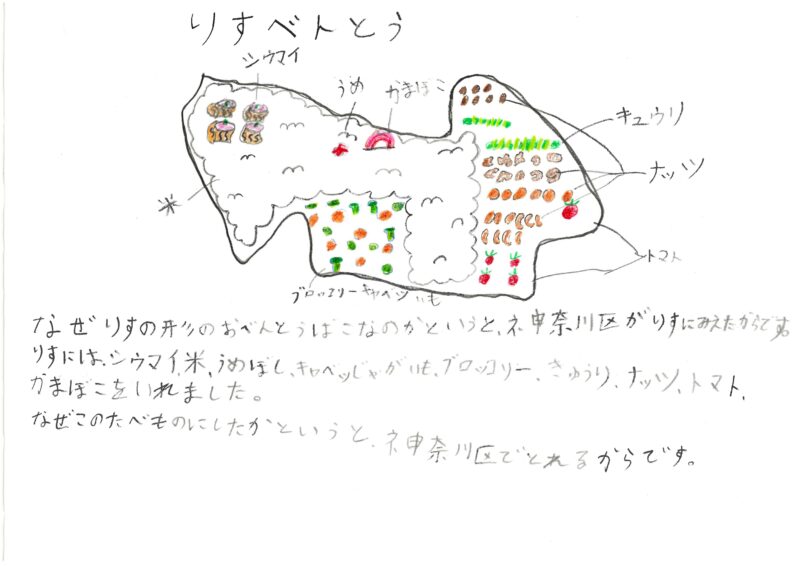 りすべんとう
シウマイ
うめ
かまぼこ
キュウリ
ナッツ
米
トマト
ブロッコリーキャベツ いも
なぜりすの形のおべんとうばこなのかというと、神奈川区がりすにみえたからです。
りすには、シウマイ、米、うめぼし、キャベツ、じゃがいも、ブロッコリー、きゅうり、ナッツ、トマト、
かまぼこをいれました。
なぜこのたべものにしたかというと、神奈川区でとれるからです。